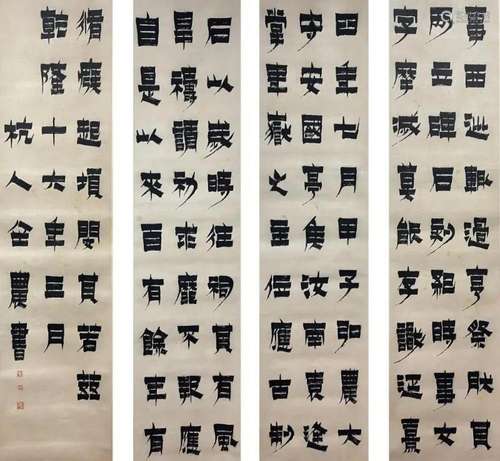 事西巡輒過亨祭肰其
所立碑石刻紀時事文
字摩滅莫能存識延熹
四年七月甲子弘農大
守安國亭侯汝南袁逢
掌華嶽之主位應古制
石以歲時往祠其有風
旱禱請祈求靡不報應
自是以來百有餘年有
循癈起頓閔其若茲
乾隆十六年三月
杭人金農書